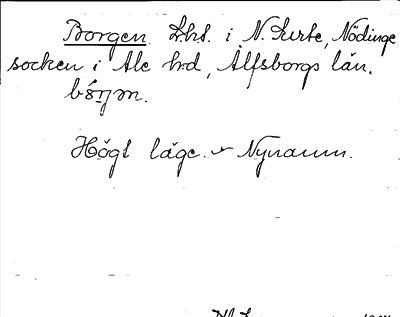 Borgen. Lht. i N. Surte, Nödinge
socken i Ale hrd, Älfsborgs län.
Högt läge. Nynamn.